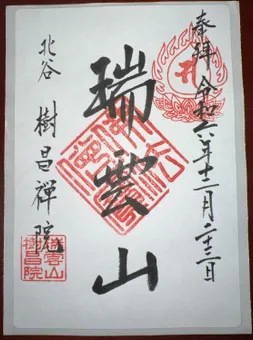 奉拝 令和六年十一月二十三日
瑞雲山
北谷 樹昌禅院
瑞雲山
樹昌院